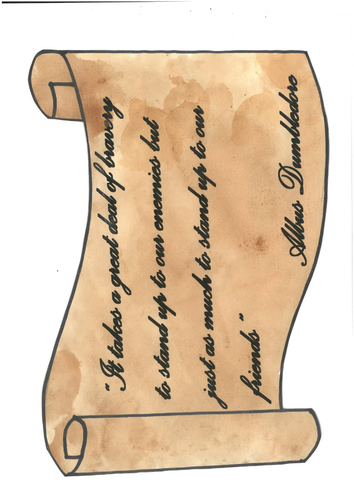 "It takes a great deal of bravery
to stand up to our enemies but
just as much to stand up to our
friends"
Albus Dumbledore